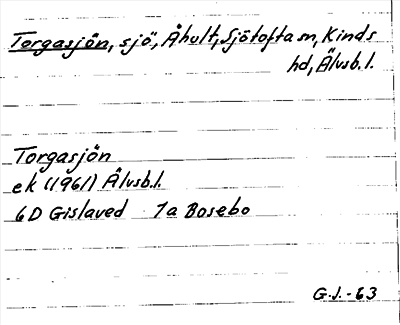 Torgasjön, sjö, Åhult, Sjötofta sn, Kinds
hd, Älvsb.l.
Torgasjön
ek (1961) Älvsb.l.
6D Gislaved 7a Bosebo
G.J.-63